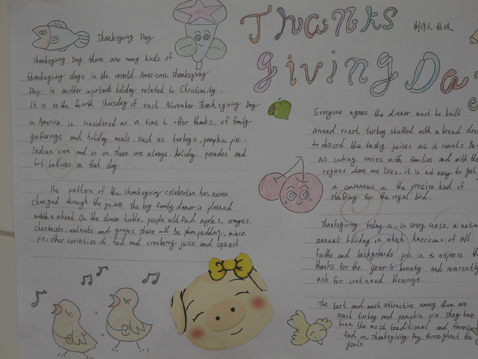 Thanksgiving Day
Thanksgiving Day there are many kinds of
thanksgiving days in the world. American thanksgiving
Day is another important holiday related to Christianity.
It is on the fourth Thursday of each November. thanksgiving Day
in America is considered as a time to offer thanks, of family
gatherings and holiday meals. such as turkeys, pumpkin pie.
Indian corn and so on. There are always holiday parades and
hot balloons on that day.
The pattern of the thanksgiving celebration has never
changed through the years. The big family dinner is planned
months ahead. On the dinner table, people will find apples, oranges,
chestnuts, walnuts and grapes. there will be plum pudding, mince
pie. other varieties of food and cranberry juice and squash.
Thanks
Giving Da
Everyone agrees the dinner must be built
around roast turkey stuffed with a bread dres
to absorb the tasty juices as it roasts. Bu
as cooking varies with families and with the
regions
one lives. it is not easy to get
a consensus on the precise kind of
stuffing for the royal bird.
Thanksgiving today is, in every sense, a nation
annual holiday in which Americans of all
faiths and backgrounds join in to express the
thanks for the year's bounty and reverently
ask for continued blessings.
The best and most attractive among them are
roast turkey and pumpkin pie.
have
been the most traditional and favorite
food on Thanksgiving Day throughout the